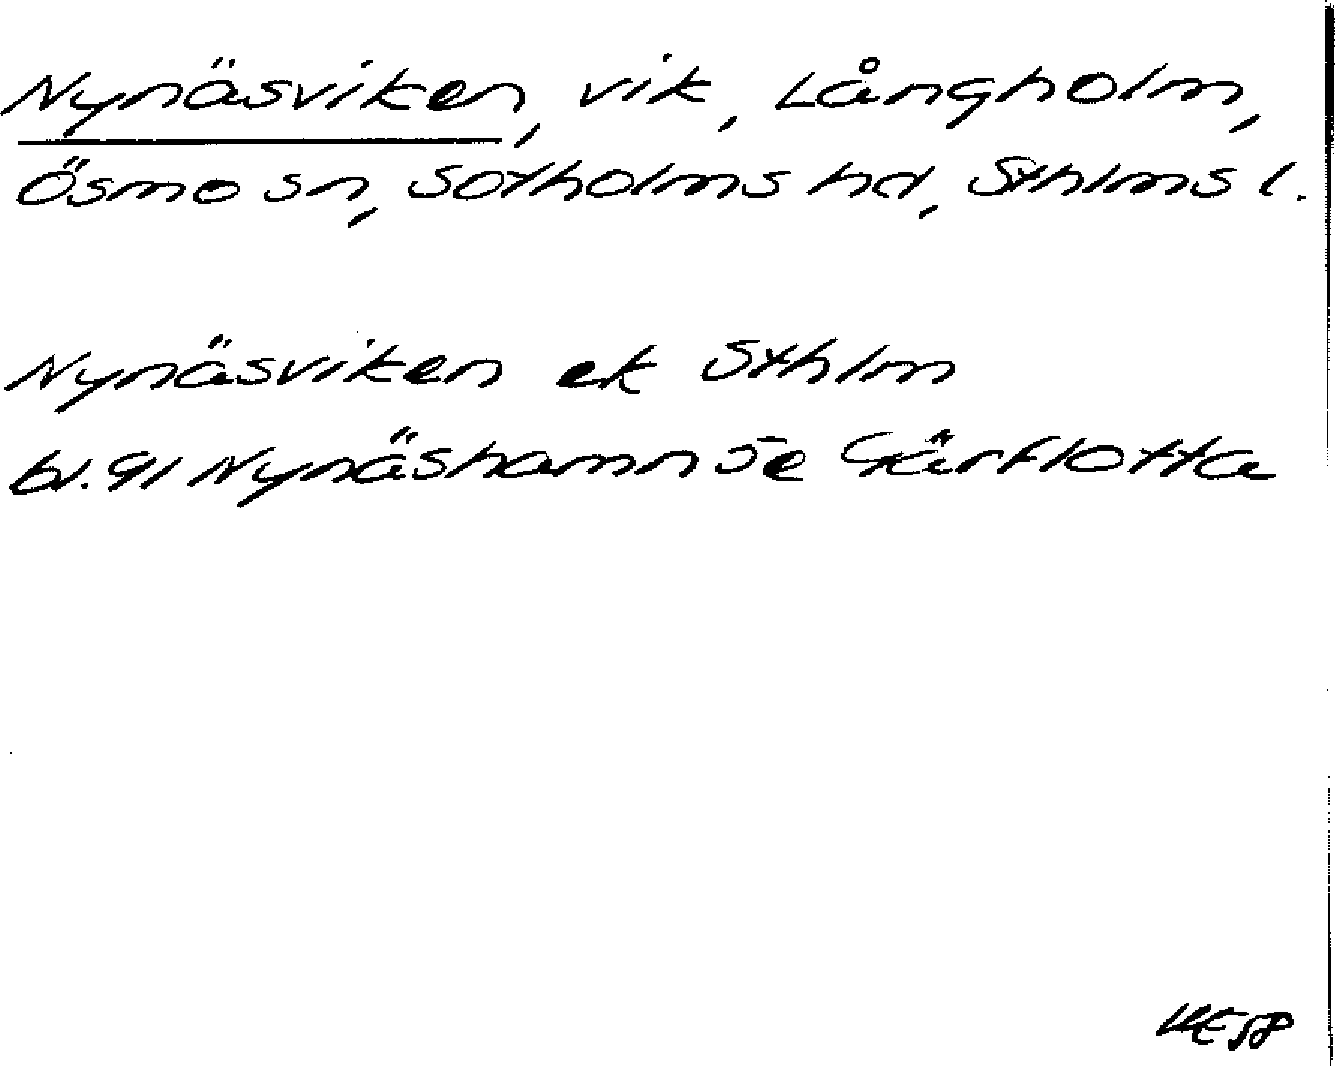 Nynäsviken, vik, Långholm,
Ösmo sn, Sotholms hd, Sthlms l.
Nynäsviken ek Sthlm
bl. 91 Nynäshamn Gårflotta